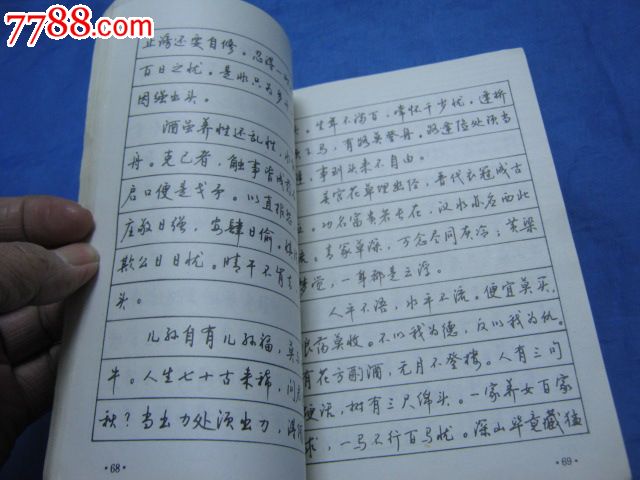 7788.com
止谤还要自修。忍得一
百日之忧。是非只为多
因强出头。
酒虽养性还乱性，水
丹。克己者，触事皆成
启口便是戈予。以直报怨
庄敬日强，安肆日偷。
欺公日日忧。晴干不肯去
头。
儿孙自有儿孙福，莫
牛。人生七十古来稀，问
秋？当出力处须出力，得
·68·
生年不满百，常怀千岁忧。逢桥
下马，有路莫登舟。路逢险处须当
事到头来不自由。
吴宫花草埋幽径，晋代衣冠成古
功名富贵若长在，汉水亦应西北
青冢草深，万念尽同灰冷；黄粱
梦觉，一身都是云浮。
人平不语，水平不流。便宜莫买，
浪荡莫收。不以我为德，反以我为仇。
有花方酌酒，无月不登楼。人有三句
硬话，树有三尺绵头。一家养女百家
求，一马不行百马忧。深山毕竟藏猛
·69·